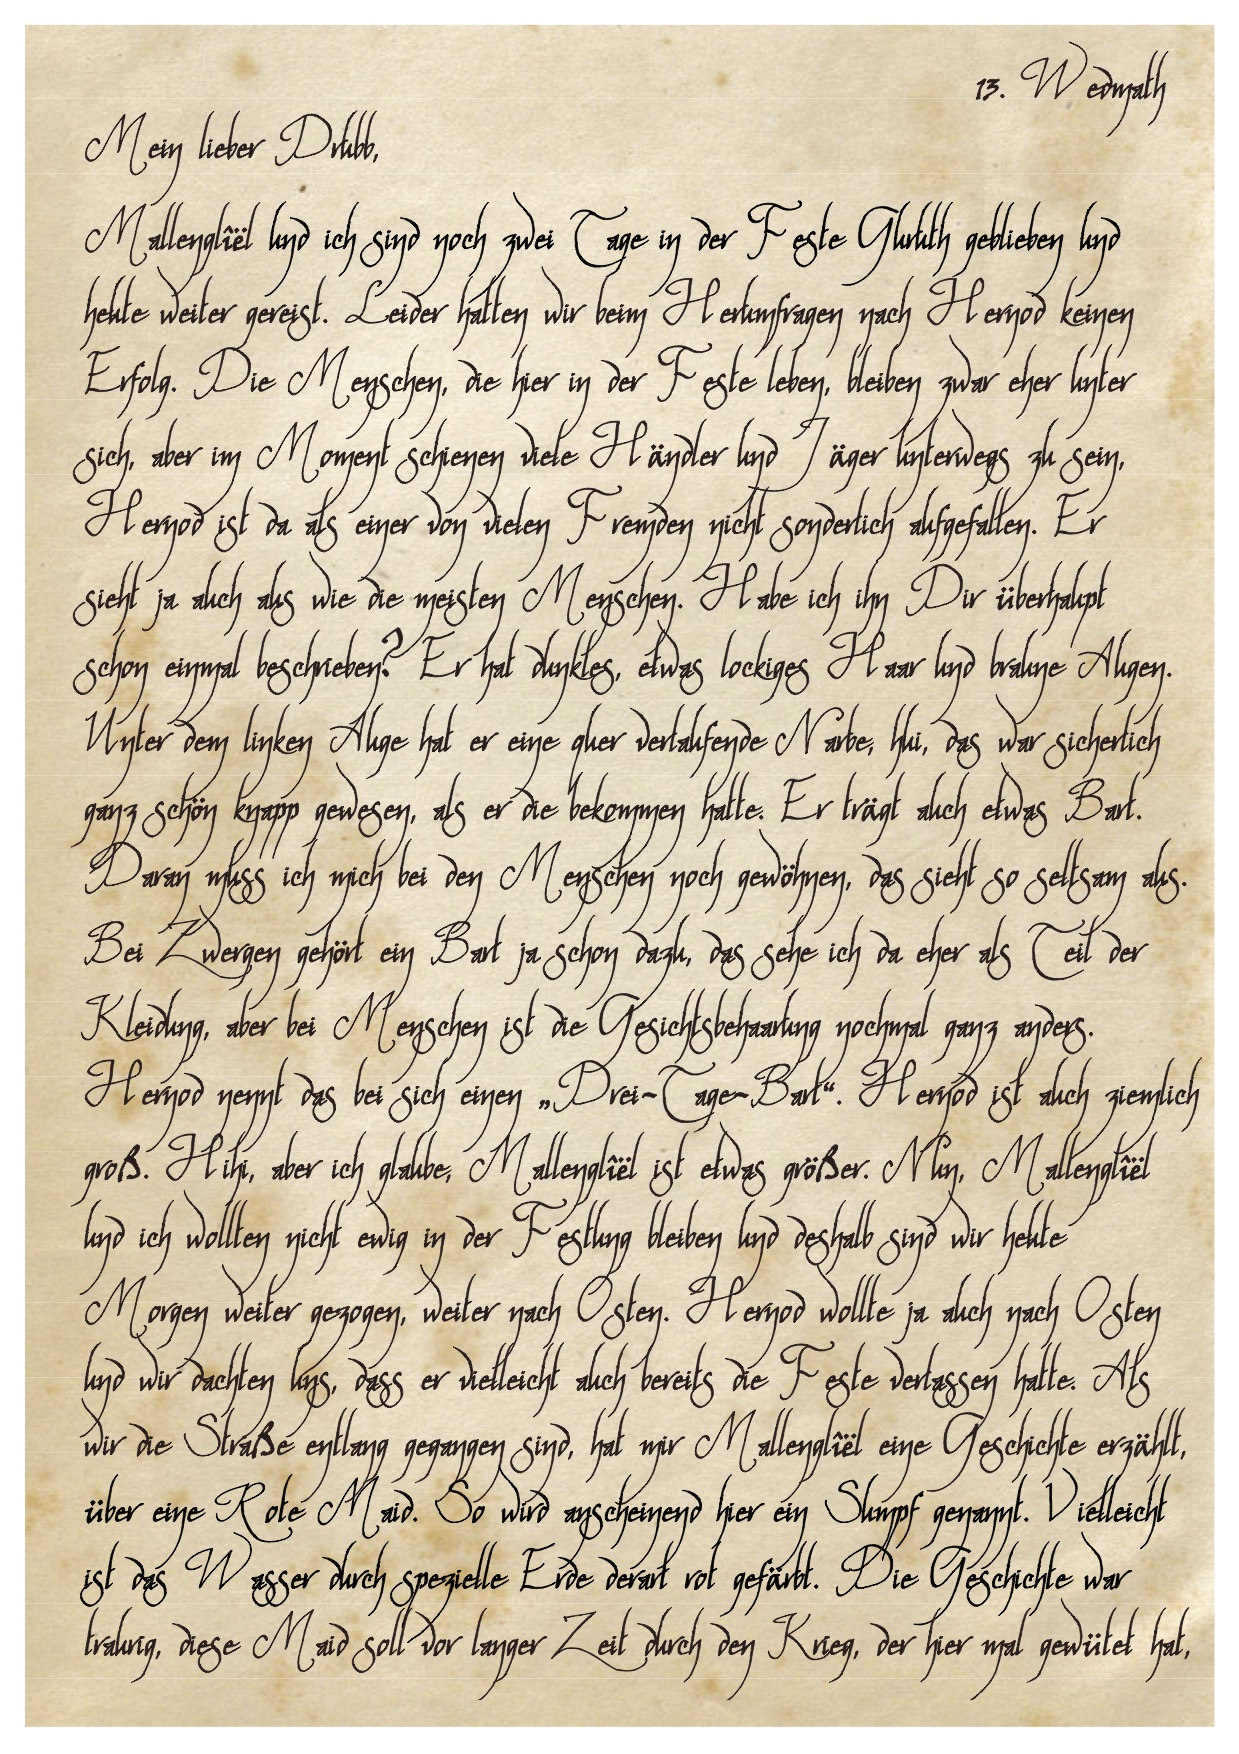 13. Wedmath
Mein lieber Drubb,
Mallenglîël und ich sind noch zwei Tage in der Feste Gluruth geblieben und
heute weiter gereist. Leider hatten wir beim Herumfragen nach Hernod keinen
Erfolg. Die Menschen, die hier in der Feste leben, bleiben zwar eher unter
sich, aber im Moment schienen viele Händler und Jäger unterwegs zu sein,
Hernod ist da als einer von vielen Fremden nicht sonderlich aufgefallen. Er
sieht ja auch aus wie die meisten Menschen. Habe ich ihn Dir überhaupt
schon einmal beschrieben? Er hat dunkles, etwas lockiges Haar und braune Augen.
Unter dem linken Auge hat er eine quer verlaufende Narbe, hui, das war sicherlich
ganz schön knapp gewesen, als er die bekommen hatte. Er trägt auch etwas Bart.
Daran muss ich mich bei den Menschen noch gewöhnen, das sieht so seltsam aus.
Bei Zwergen gehört ein Bart ja schon dazu, das sehe ich da eher als Teil der
Kleidung, aber bei Menschen ist die Gesichtsbehaarung nochmal ganz anders.
Hernod nennt das bei sich einen „Drei-Tage-Bart“. Hernod ist auch ziemlich
groß. Hihi, aber ich glaube, Mallenglîël ist etwas größer. Nun, Mallenglîël
und ich wollten nicht ewig in der Festung bleiben und deshalb sind wir heute
Morgen weiter gezogen, weiter nach Osten. Hernod wollte ja auch nach Osten
und wir dachten uns, dass er vielleicht auch bereits die Feste verlassen hatte. Als
wir die Straße entlang gegangen sind, hat mir Mallenglîël eine Geschichte erzählt,
über eine Rote Maid. So wird anscheinend hier ein Sumpf genannt. Vielleicht
ist das Wasser durch spezielle Erde derart rot gefärbt. Die Geschichte war
traurig, diese Maid soll vor langer Zeit durch den Krieg, der hier mal gewütet hat,